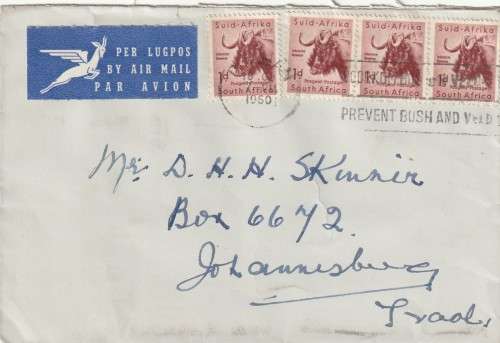 PER LUGPOS
BY AIR MAIL
PAR AVION
Suid-Afrika Suid-Afrika Suid-Afrika Suid-Afrika
1d 1d 1d 1d
South Africa South Africa South Africa South Africa
1960
PREVENT BUSH AND VELD
Mr. D. H. H. Skinner
Box 6672.
Johannesburg